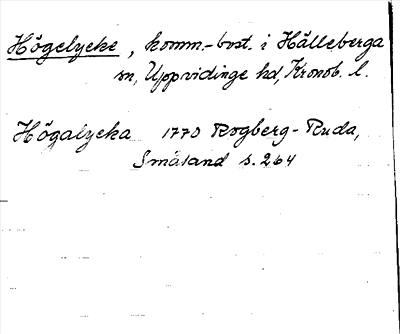 Högelycke, komm.-bost. i Hälleberga
sn, Uppvidinge hd, Kronob. l.
Högalycka 1770 Rogberg-Ruda,
Småland s. 264